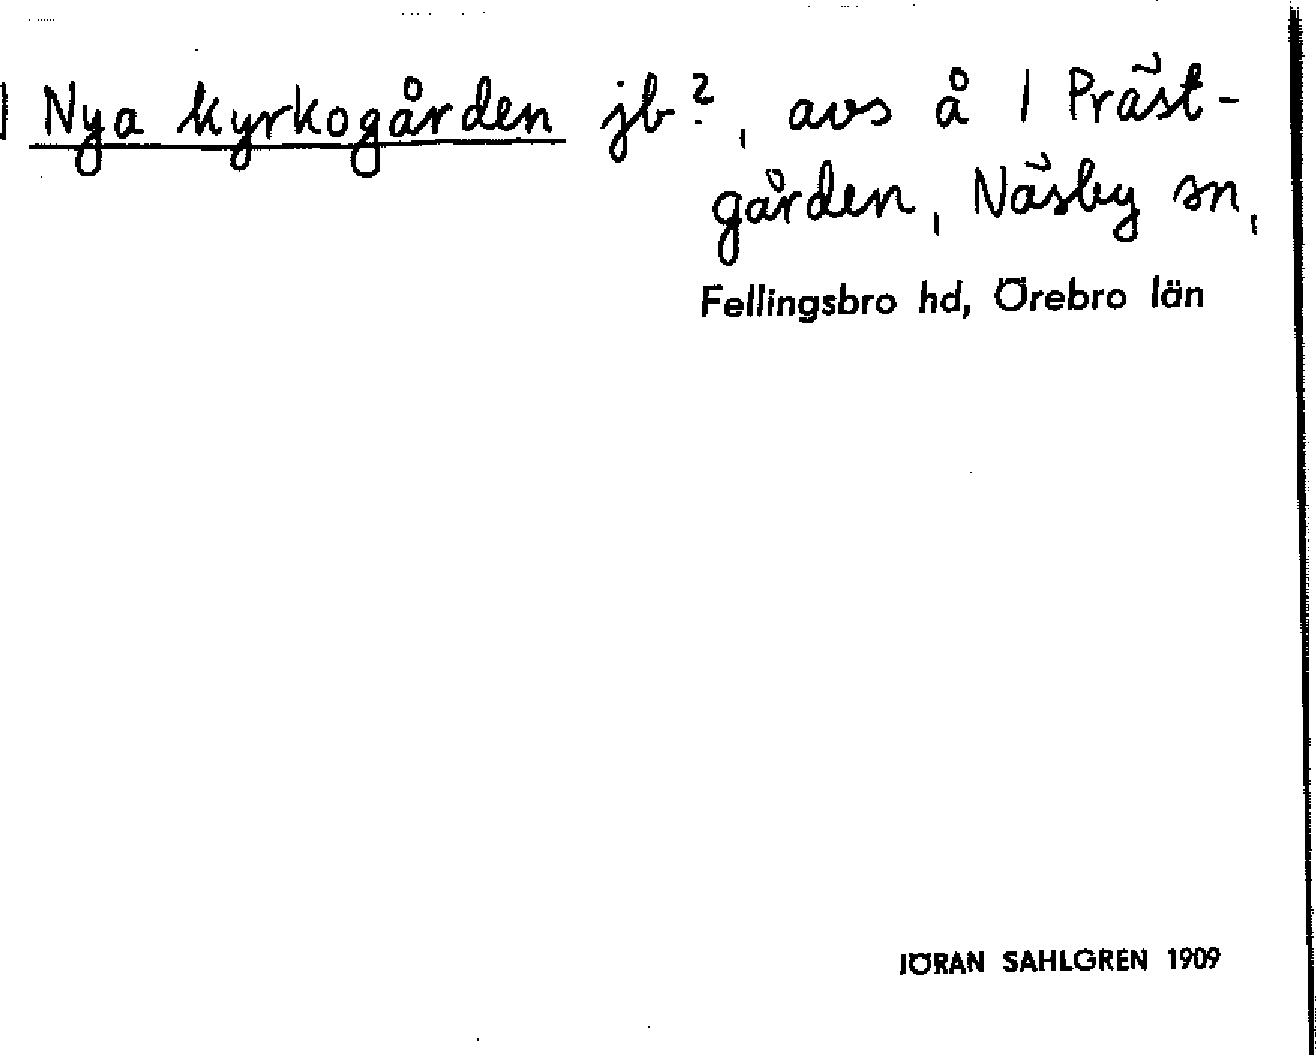 Nya kyrkogården jb?, avs å 1 Präst-
gården, Näsby sn,
Fellingsbro hd, Örebro län
JÖRAN SAHLGREN 1909